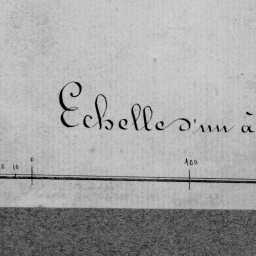 Echelle d'un à
10 0 100